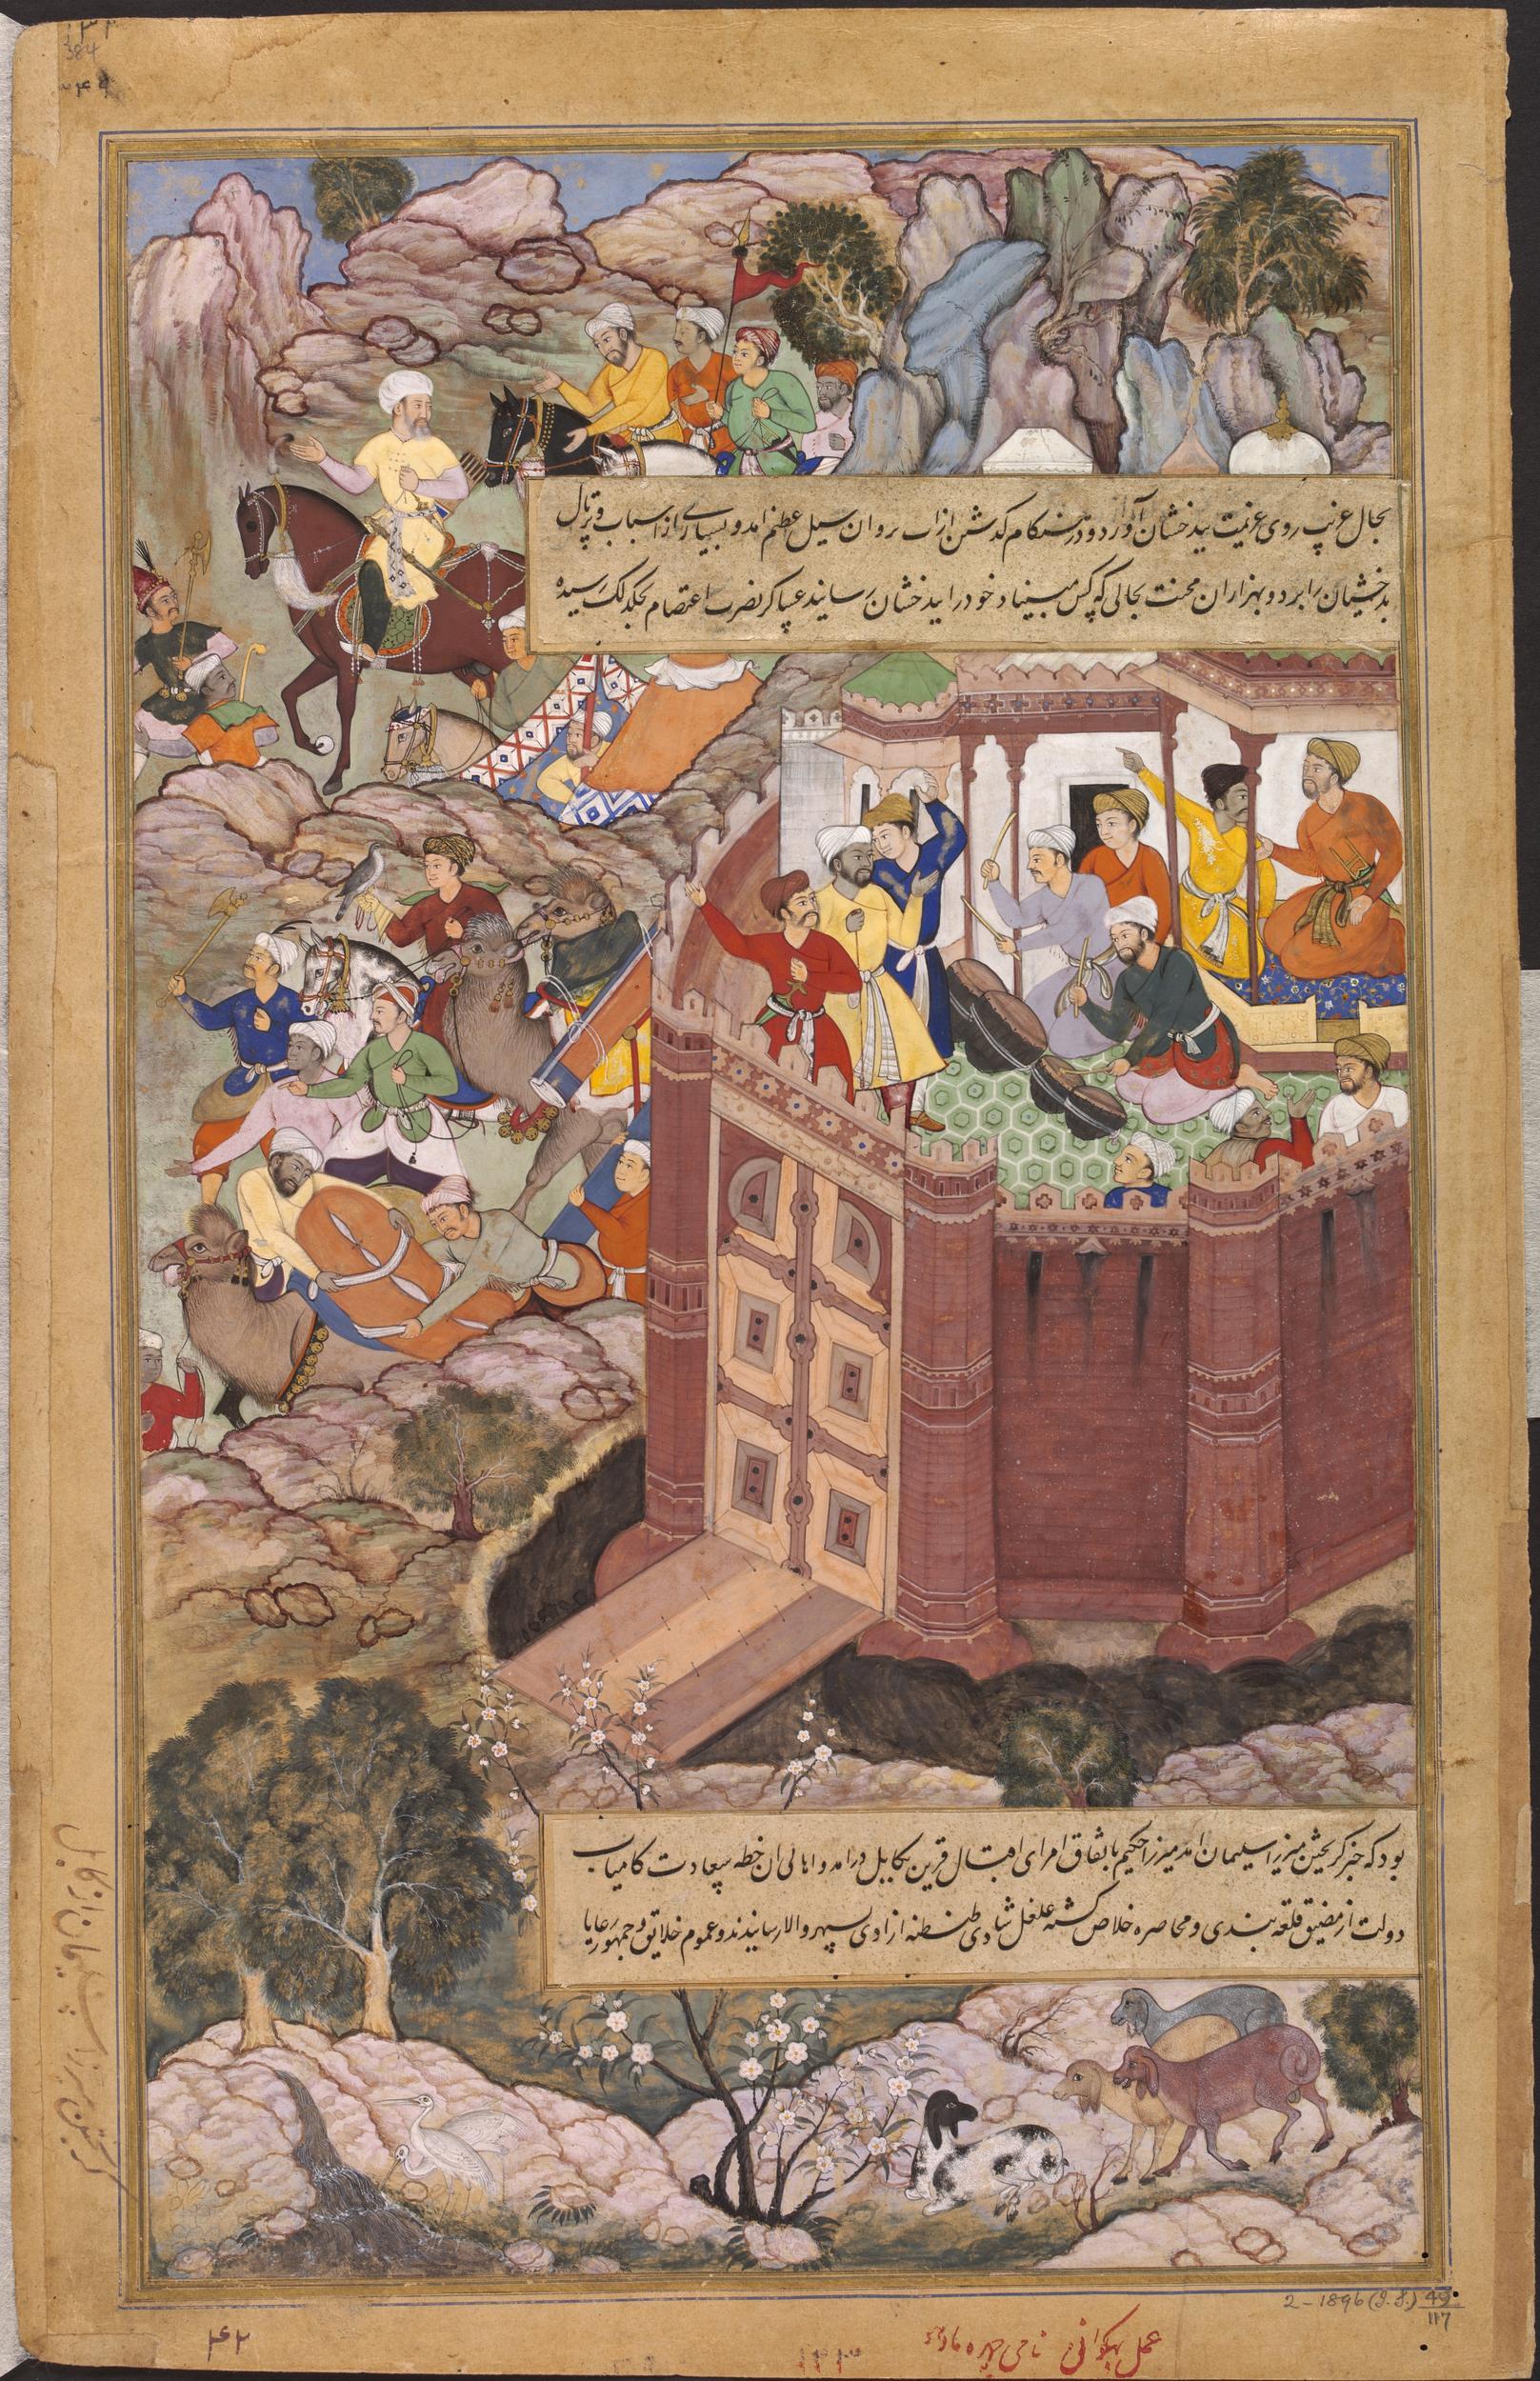 384
بحال غریب روی عزیمت ببدخشان آورد و در هنگام گذشتن از آب پروان سیل عظیم آمد و بسیاری از اسباب و پرتال
بدخشیان را برد و بهزاران محنت بحالی که کس مبیناد خود را ببدخشان رسانید عساکر نصرت اعتصام بجلکلک رسیده
بود که خبر گریختن میرزا سلیمان آمد میرزا حکیم باتفاق امرای اقبال قرین بکابل درآمد و اهالی آن خطه سعادت کامیاب
دولت از مضیق قلعه بندی و محاصره خلاص گشته غلغل شادی و طنطنه آزادی بسپهر والا رسانیدند و عموم خلایق و جمهور رعایا
گریختن میرزا سلیمان از کابل
2-1896 (I.S.) 49/117
۴۲
عمل بهگوان نامی چهره مادهو